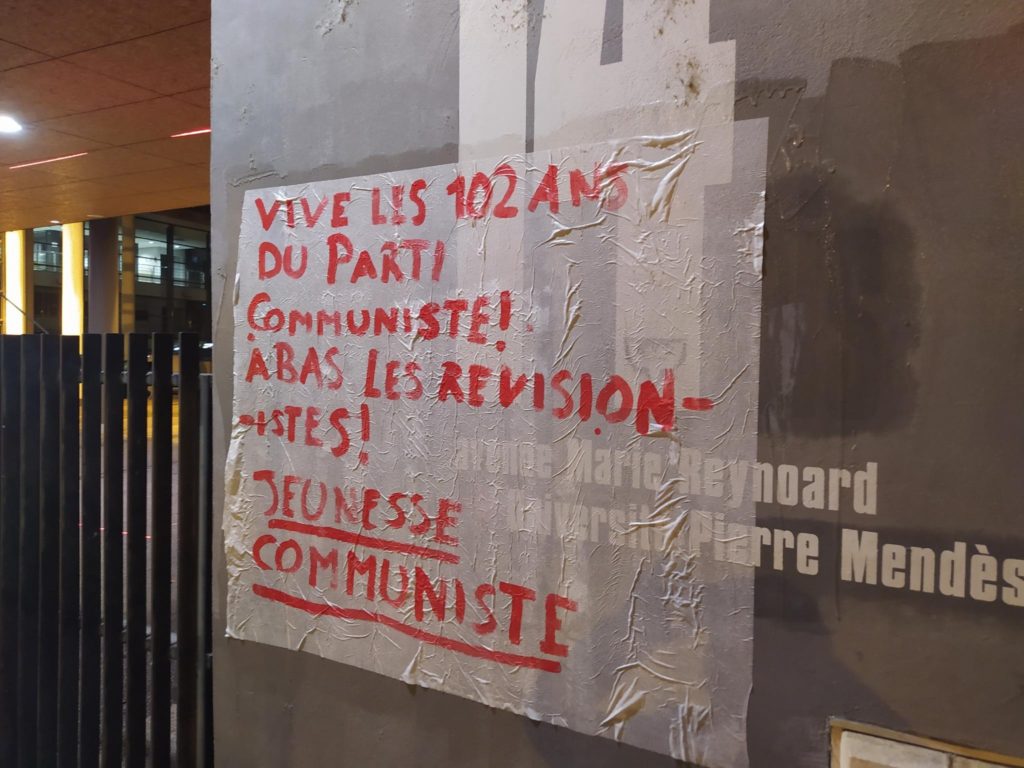 14
VIVE LES 102 ANS
DU PARTI
COMMUNISTE!
ABAS LES REVISION-
-ISTES!
JEUNESSE
COMMUNISTE
avenue Marie Reynoard
Université Pierre Mendès